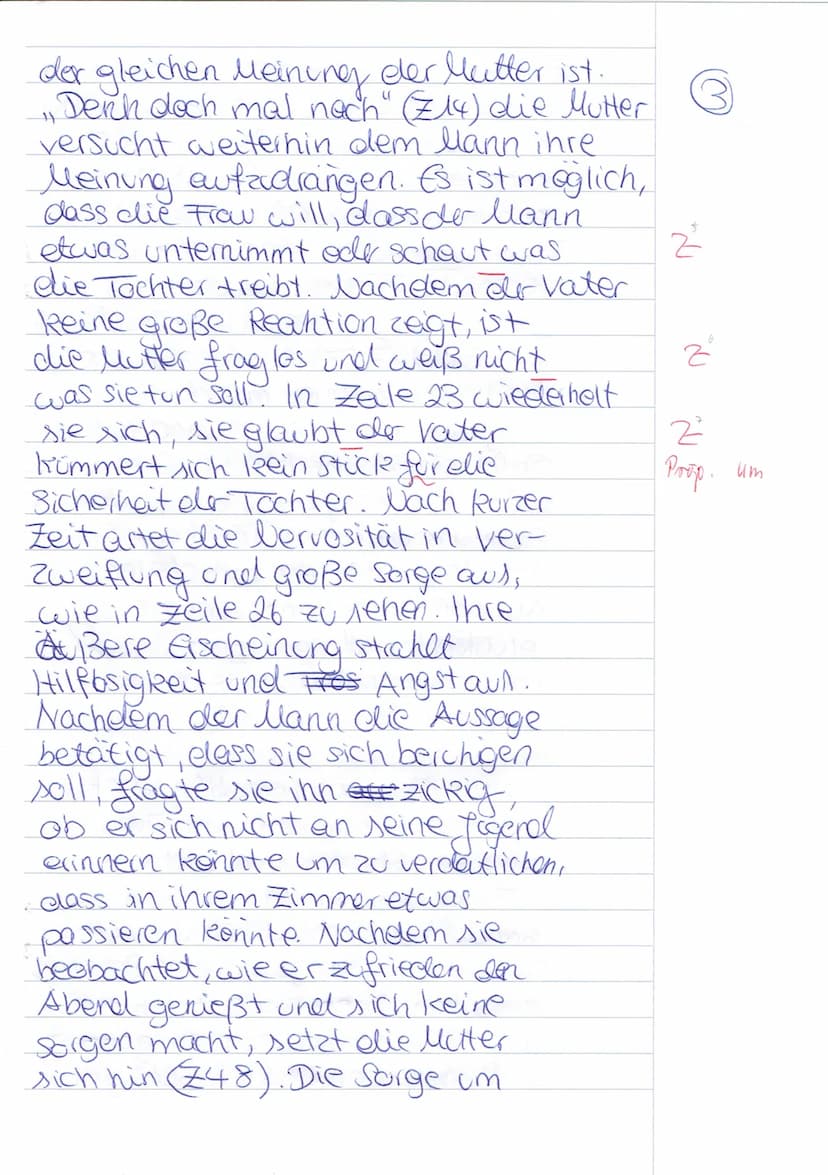 der gleichen Meinung der Mutter ist.
③
„Denk doch mal nach" (Z14) die Mutter
versucht weiterhin dem Mann ihre
Meinung aufzudrängen. Es ist möglich,
dass die Frau will, dass der Mann
etwas unternimmt oder schaut was
Z
die Tochter treibt. Nachdem der Vater
keine große Reaktion zeigt, ist
die Mutter fraglos und weiß nicht
Z
was sie tun soll. In Zeile 23 wiederholt
sie sich, sie glaubt der Vater
Z
kümmert sich kein Stück für die
Präp. um
Sicherheit der Tochter. Nach kurzer
Zeit artet die Nervosität in Ver-
zweiflung und große Sorge aus,
wie in Zeile 26 zu sehen. Ihre
Äußere Erscheinung strahlt
Hilflosigkeit und Angst aus.
Nachdem der Mann die Aussage
betätigt, dass sie sich beruhigen
soll, fragte sie ihn zickig,
ob er sich nicht an seine Jugend
erinnern könnte um zu verdeutlichen,
dass in ihrem Zimmer etwas
passieren könnte. Nachdem sie
beobachtet, wie er zufrieden den
Abend genießt und sich keine
Sorgen macht, setzt die Mutter
sich hin (Z48). Die Sorge um